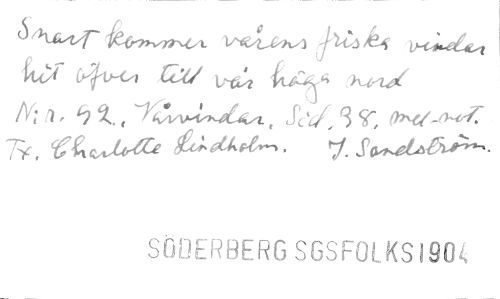 Snart kommer vårens friska vindar
hit öfver till vår höga nord
N:r. 92., Vårvindar. Sid. 38, mel-not.
Tx. Charlotte Lindholm. J. Sandström.
SÖDERBERG SGSFOLKS1904